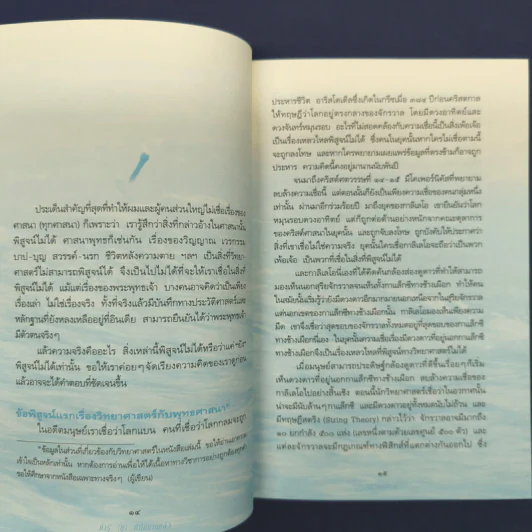 ประเด็นสำคัญที่สุดที่ทำให้ผมและผู้คนส่วนใหญ่ไม่เชื่อเรื่องของ
ศาสนา (ทุกศาสนา) ก็เพราะว่า เรารู้สึกว่าสิ่งที่กล่าวอ้างในศาสนานั้น
พิสูจน์ไม่ได้ ศาสนาพุทธก็เช่นกัน เรื่องของวิญญาณ เวรกรรม
บาป-บุญ สวรรค์-นรก ชีวิตหลังความตาย ฯลฯ เป็นสิ่งที่วิทยา-
ศาสตร์ไม่สามารถพิสูจน์ได้ จึงเป็นไปไม่ได้ที่จะให้เราเชื่อในสิ่งที่
พิสูจน์ไม่ได้ แม้แต่เรื่องของพระพุทธเจ้า บางคนอาจคิดว่าเป็นเพียง
เรื่องเล่า ไม่ใช่เรื่องจริง ทั้งที่จริงแล้วมีบันทึกทางประวัติศาสตร์และ
หลักฐานที่ยังหลงเหลืออยู่ที่อินเดีย สามารถยืนยันได้ว่าพระพุทธเจ้า
มีตัวตนจริงๆ
แล้วความจริงคืออะไร สิ่งเหล่านี้พิสูจน์ไม่ได้หรือว่าแค่ "ยัง"
พิสูจน์ไม่ได้เท่านั้น ขอให้เราค่อยๆ จัดเรียงความคิดของเราดูก่อน
แล้วอาจจะได้คำตอบที่ชัดเจนขึ้น
ข้อพิสูจน์แรกเรื่องวิทยาศาสตร์กับพุทธศาสนา*
ในอดีตมนุษย์เราเชื่อว่าโลกแบน คนที่เชื่อว่าโลกกลมจะถูก
*ข้อมูลในส่วนที่เกี่ยวข้องกับวิทยาศาสตร์ในหนังสือเล่มนี้ ขอให้อ่านเพื่อความ
เข้าใจเป็นหลักเท่านั้น หากต้องการอ่านเพื่อให้ได้เนื้อหาทางวิชาการอย่างถูกต้องครบถ้วน
ขอให้ศึกษาจากหนังสือเฉพาะทางจริงๆ (ผู้เขียน)
๑๔
ประหารชีวิต อาริสโตเติลซึ่งเกิดในกรีซเมื่อ ๓๘๔ ปีก่อนคริสตกาล
ให้ทฤษฎีว่าโลกอยู่ตรงกลางของจักรวาล โดยมีดวงอาทิตย์และ
ดวงจันทร์หมุนรอบ อะไรที่ไม่สอดคล้องกับความเชื่อนี้เป็นสิ่งเพ้อเจ้อ
เป็นเรื่องเหลวไหลพิสูจน์ไม่ได้ ซึ่งคนในยุคนั้นหากใครไม่เชื่อตามนี้
จะถูกลงโทษ และหากใครพยายามเผยแพร่ข้อมูลที่ตรงข้ามก็อาจถูก
ประหาร ความคิดนี้คงอยู่มานานนับพันปี
จนมาถึงคริสต์ศตวรรษที่ ๑๔-๑๕ มีโคเพอร์นิคัสที่พยายาม
ลบล้างความเชื่อนี้ แต่ตอนนั้นก็ยังเป็นเพียงความเชื่อของคนกลุ่มหนึ่ง
เท่านั้น ผ่านมาอีกร่วมร้อยปี มาถึงยุคของกาลิเลโอ เขายืนยันว่าโลก
หมุนรอบดวงอาทิตย์ แต่ก็ถูกต่อต้านอย่างหนักจากคณะตุลาการ
ของคริสต์ศาสนาในยุคนั้น และถูกจับลงโทษ ถูกบังคับให้ประกาศว่า
สิ่งที่เขาเชื่อไม่ใช่ความจริง ยุคนั้นใครเชื่อกาลิเลโอจะถือว่าเป็นพวก
เพ้อเจ้อ เป็นพวกที่เชื่อในสิ่งที่พิสูจน์ไม่ได้
และกาลิเลโอนี่เองที่ได้คิดค้นกล้องดูดาวที่ทำให้สามารถ
มองเห็นนอกสุริยจักรวาลจนเห็นทางกาแล็กซีทางช้างเผือกได้ ทำให้คน
ในสมัยนั้นเริ่มรู้ว่ายังมีดวงดาวอีกมากมายนอกเหนือจากในสุริยจักรวาล
แต่นอกเขตของกาแล็กซีทางช้างเผือกนั้น กาลิเลโอมองเห็นเพียงความ
มืด เขาจึงเชื่อว่าสุดขอบของจักรวาลทั้งหมดอยู่ที่สุดขอบของกาแล็กซี
ทางช้างเผือกนี่เอง ในยุคนั้นความเชื่อเรื่องมีดวงดาวที่อยู่นอกกาแล็กซี
ทางช้างเผือกจึงเป็นเรื่องเหลวไหลที่พิสูจน์ทางวิทยาศาสตร์ไม่ได้
เมื่อมนุษย์สามารถประดิษฐ์กล้องดูดาวที่ดีขึ้นเรื่อยๆ ก็เริ่ม
เห็นดวงดาวที่อยู่นอกทางช้างเผือก ลบล้างความเชื่อของ
กาลิเลโอไปอย่างสิ้นเชิง ตอนนี้นักวิทยาศาสตร์เชื่อว่าในอวกาศนั้น
น่าจะมีนับล้านๆ กาแล็กซี และมีดวงดาวอยู่ทั้งหมดนับไม่ถ้วน และ
มีทฤษฎีสตริง (String Theory) กล่าวไว้ว่า จักรวาลอาจมีถึง
๑๐ ยกกำลัง ๕๐๐ แห่ง (เลขหนึ่งตามด้วยเลขศูนย์ ๕๐๐ ตัว) และ
แต่ละจักรวาลจะมีกฎเกณฑ์ทางฟิสิกส์ที่แตกต่างกันออกไป ซึ่ง
๑๕